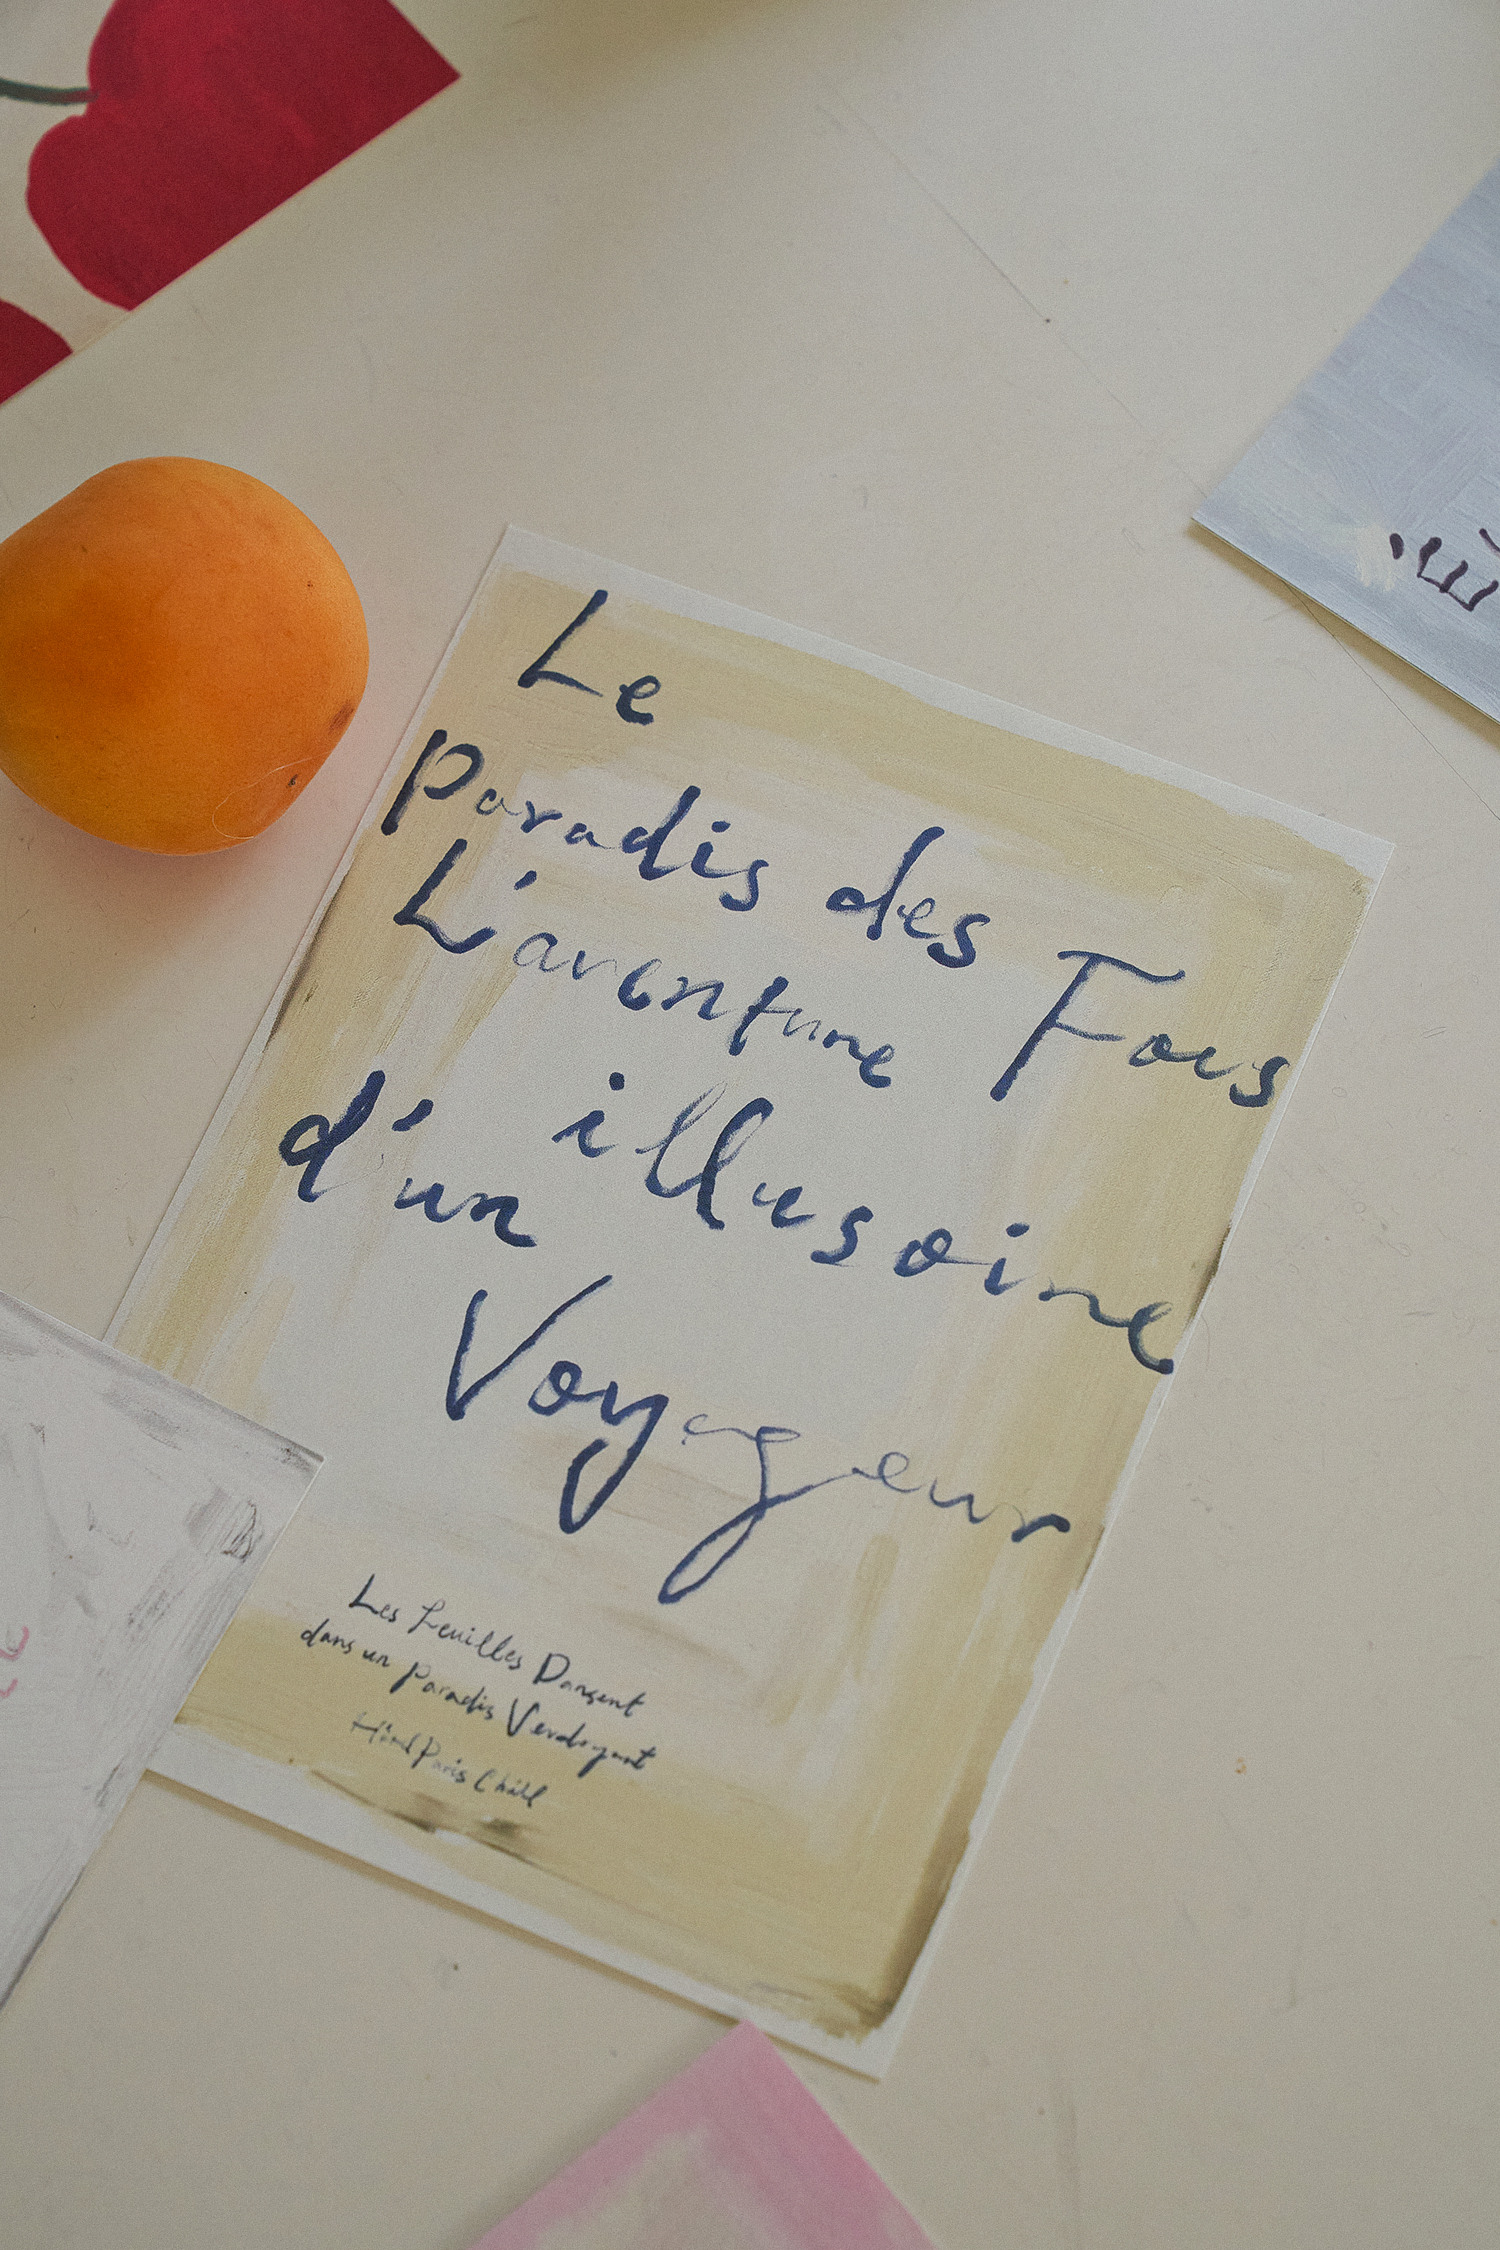 Le
Paradis des Fous
L'aventure
illusoire
d'un
Voyageur
Les Feuilles Dansent
dans un Paradis Verdoyant
Hôtel Paris